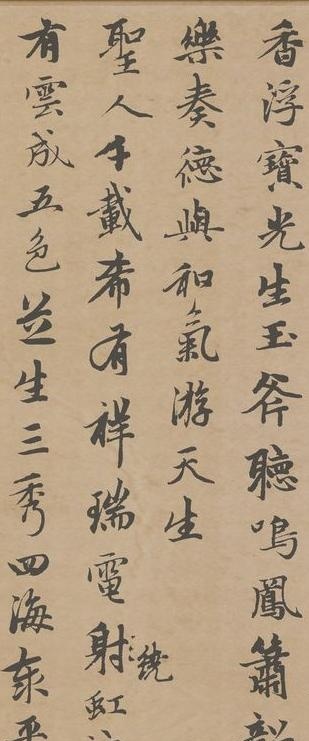 香浮寶光生玉聽鳴鳳簫韶
樂奏德與和氣游天生
聖人千載希有祥瑞電射虹
繞
有雲成五色芝生三秀四海泰平